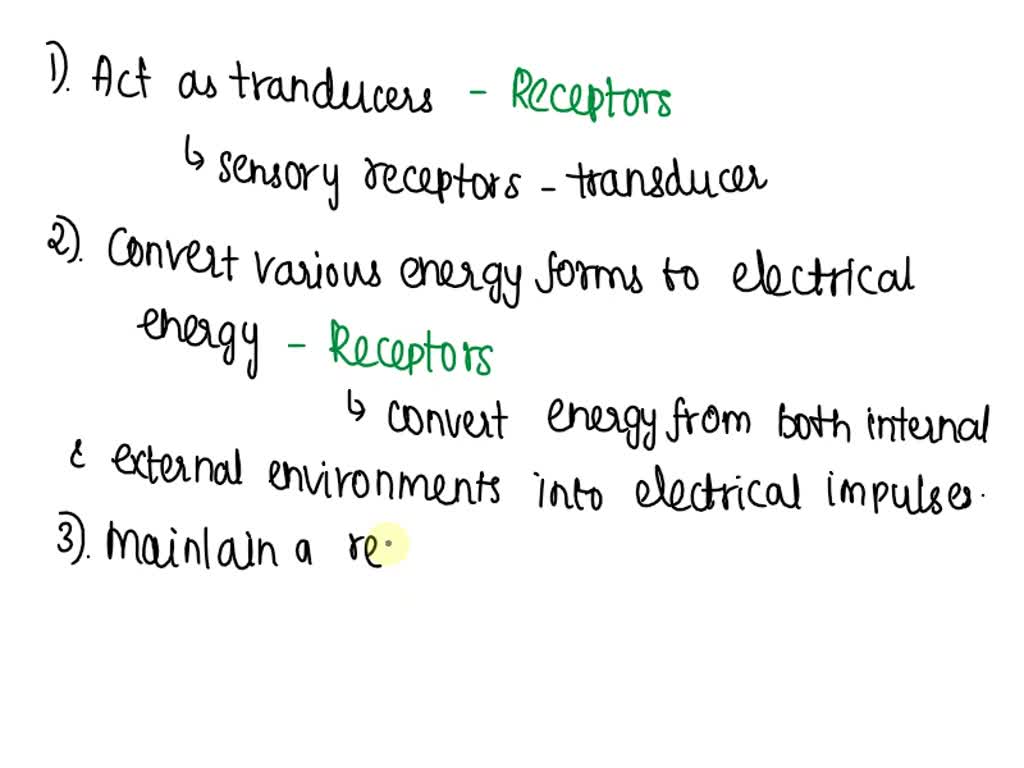 1). Act as tranducers - Receptors
↳ sensory receptors - transducer
2). Convert various energy forms to electrical
energy - Receptors
↳ convert energy from both internal
& external environments into electrical impulses.
3). Maintain a re